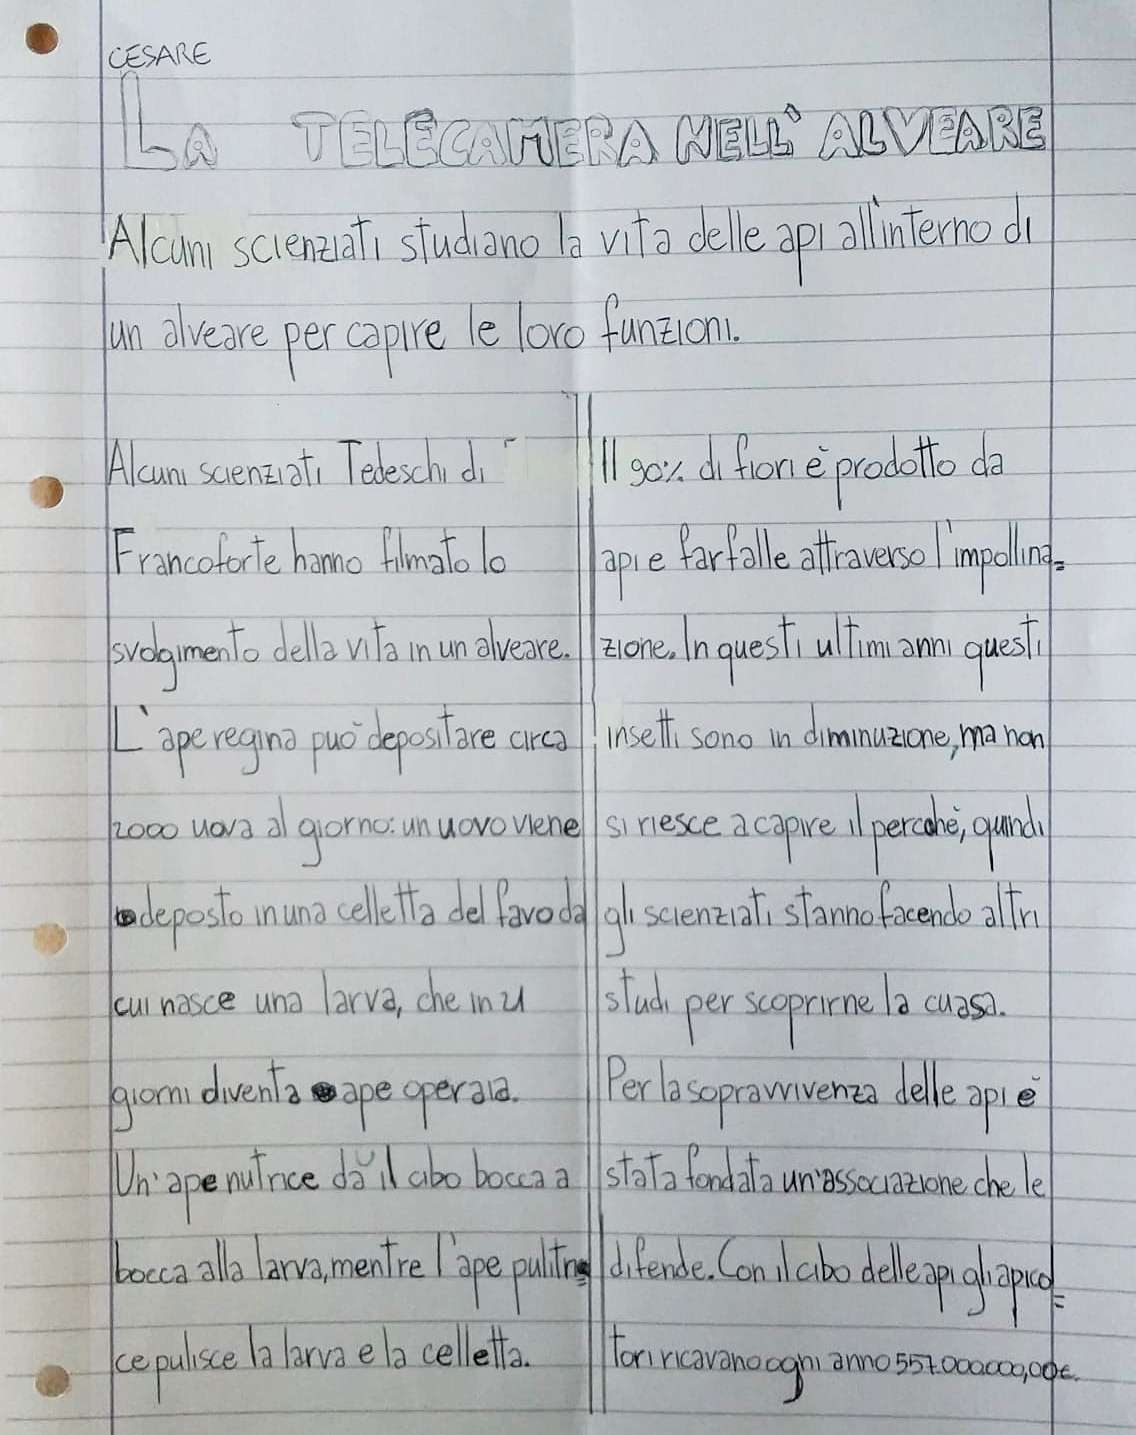 CESARE
LA TELECAMERA NELL'ALVEARE
Alcuni scienziati studiano la vita delle api all'interno di
un alveare per capire le loro funzioni.
Alcuni scienziati Tedeschi di
Francoforte hanno filmato lo
svolgimento della vita in un alveare.
L'ape regina può depositare circa
2000 uova al giorno: un uovo viene
deposto in una celletta del favo da
cui nasce una larva, che in 21
giorni diventa ape operaia.
Un'ape nutrice dà il cibo bocca a
bocca alla larva, mentre l'ape pulitri=
ce pulisce la larva e la celletta.
Il 90% di fiori è prodotto da
api e farfalle attraverso l'impollina=
zione. In questi ultimi anni questi
insetti sono in diminuzione, ma non
si riesce a capire il perché, quindi
gli scienziati stanno facendo altri
studi per scoprirne la cuasa.
Per la sopravvivenza delle api è
stata fondata un'associazione che le
difende. Con il cibo delle api gli apicol=
tori ricavano ogni anno 557.000.000,00€.